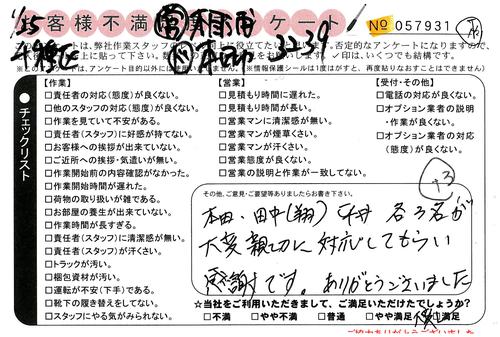 お客様不満 ケート
No 057931
1/25
3239
このアンケートは、弊社作業スタッフの
否定的なアンケートになりますので、
✓印は、いくつでも結構です。
アンケート目的以外には
※情報保護シールは1度はがすと、再度貼りなおすことはできません)
チェックリスト
【作業】
□責任者の対応(態度)が良くない。
□他のスタッフの対応(態度)が良くない。
□作業を見ていて不安がある。
□責任者(スタッフ)に好感が持てない。
□お客様への挨拶が出来ていない。
□ご近所への挨拶・気遣いが無い。
□作業開始前の内容確認がなかった。
□作業開始時間が遅れた。
□荷物の取り扱いが雑である。
□お部屋の養生が出来ていない。
□作業時間が長すぎる。
□責任者(スタッフ)に清潔感が無い。
□責任者(スタッフ)が汗くさい。
□トラックが汚い。
□梱包資材が汚い。
□運転が不安(下手)である。
□靴下の履き替えをしてない。
□スタッフにやる気がみられない。
【営業】
□見積もり時間に遅れた。
□見積もり時間が長い。
□営業マンに清潔感が無い。
□営業マンが煙草くさい。
□営業マンが汗くさい。
□営業態度が良くない。
□営業の説明と作業が一致してない。
【受付・その他】
□電話の対応が良くない。
□オプション業者の説明
・作業が良くない。
□オプション業者の対応
(態度)が良くない。
その他、ご意見・ご要望等ありましたらお書き下さい。
+3
本田・田中(翔) 各3名が
大変親切に対応してもらい
感謝です。ありがとうございました
☆当社をご利用いただきまして、ご満足いただけたでしょうか?
□不満 □やや不満 □普通 □やや満足 □満足
ご協力ありがとうございました